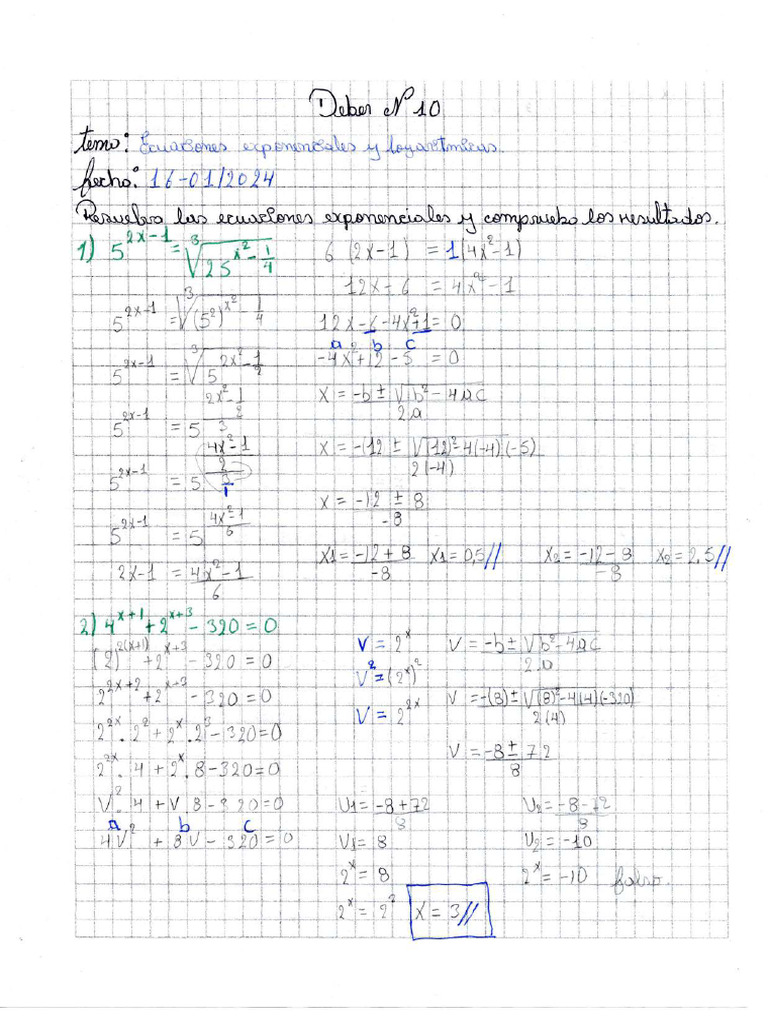 Deber N 10
tema: Ecuaciones exponenciales y logaritmicas.
fecha: 16-01/2024
Resuelva las ecuaciones exponenciales y comprueba los resultados.
1) 5^(2x-1) = ∛(25^(x²-1/4))
5^(2x-1) = ∛((5²)^(x²-1/4))
5^(2x-1) = ∛(5^(2x²-1/2))
5^(2x-1) = 5^((2x²-1/2)/3)
5^(2x-1) = 5^(((4x²-1)/2)/(3/1))
5^(2x-1) = 5^((4x²-1)/6)
2x-1 = (4x²-1)/6
6 (2x-1) = 1(4x²-1)
12x-6 = 4x²-1
12x-6-4x²+1=0
a b c
-4x²+12-5 = 0
x = (-b ± √(b²-4ac))/2a
x = (-(12 ± √((12)²-4(-4)(-5)))/2(-4)
x = (-12 ± 8)/-8
x1 = (-12+8)/-8 x1 = 0,5// x2 = (-12-8)/-8 x2 = 2,5//
2) 4^(x+1) + 2^(x+3) - 320 = 0
(2)^(2(x+1)) + 2^(x+3) - 320 = 0
2^(2x+2) + 2^(x+3) - 320 = 0
2^(2x) . 2² + 2^x . 2³ - 320 = 0
2^(2x) . 4 + 2^x . 8 - 320 = 0
V² . 4 + V . 8 - 320 = 0
a b c
4V² + 8V - 320 = 0
V = 2^x
V² = (2^x)²
V = 2^(2x)
V = (-b ± √(b²-4ac))/2.a
V = (-(8) ± √((8)²-4(4)(-320)))/2(4)
V = (-8 ± 72)/8
U1 = (-8+72)/8 U2 = (-8-72)/8
U1 = 8 U2 = -10
2^x = 8 2^x = -10 falso.
2^x = 2³ x = 3//